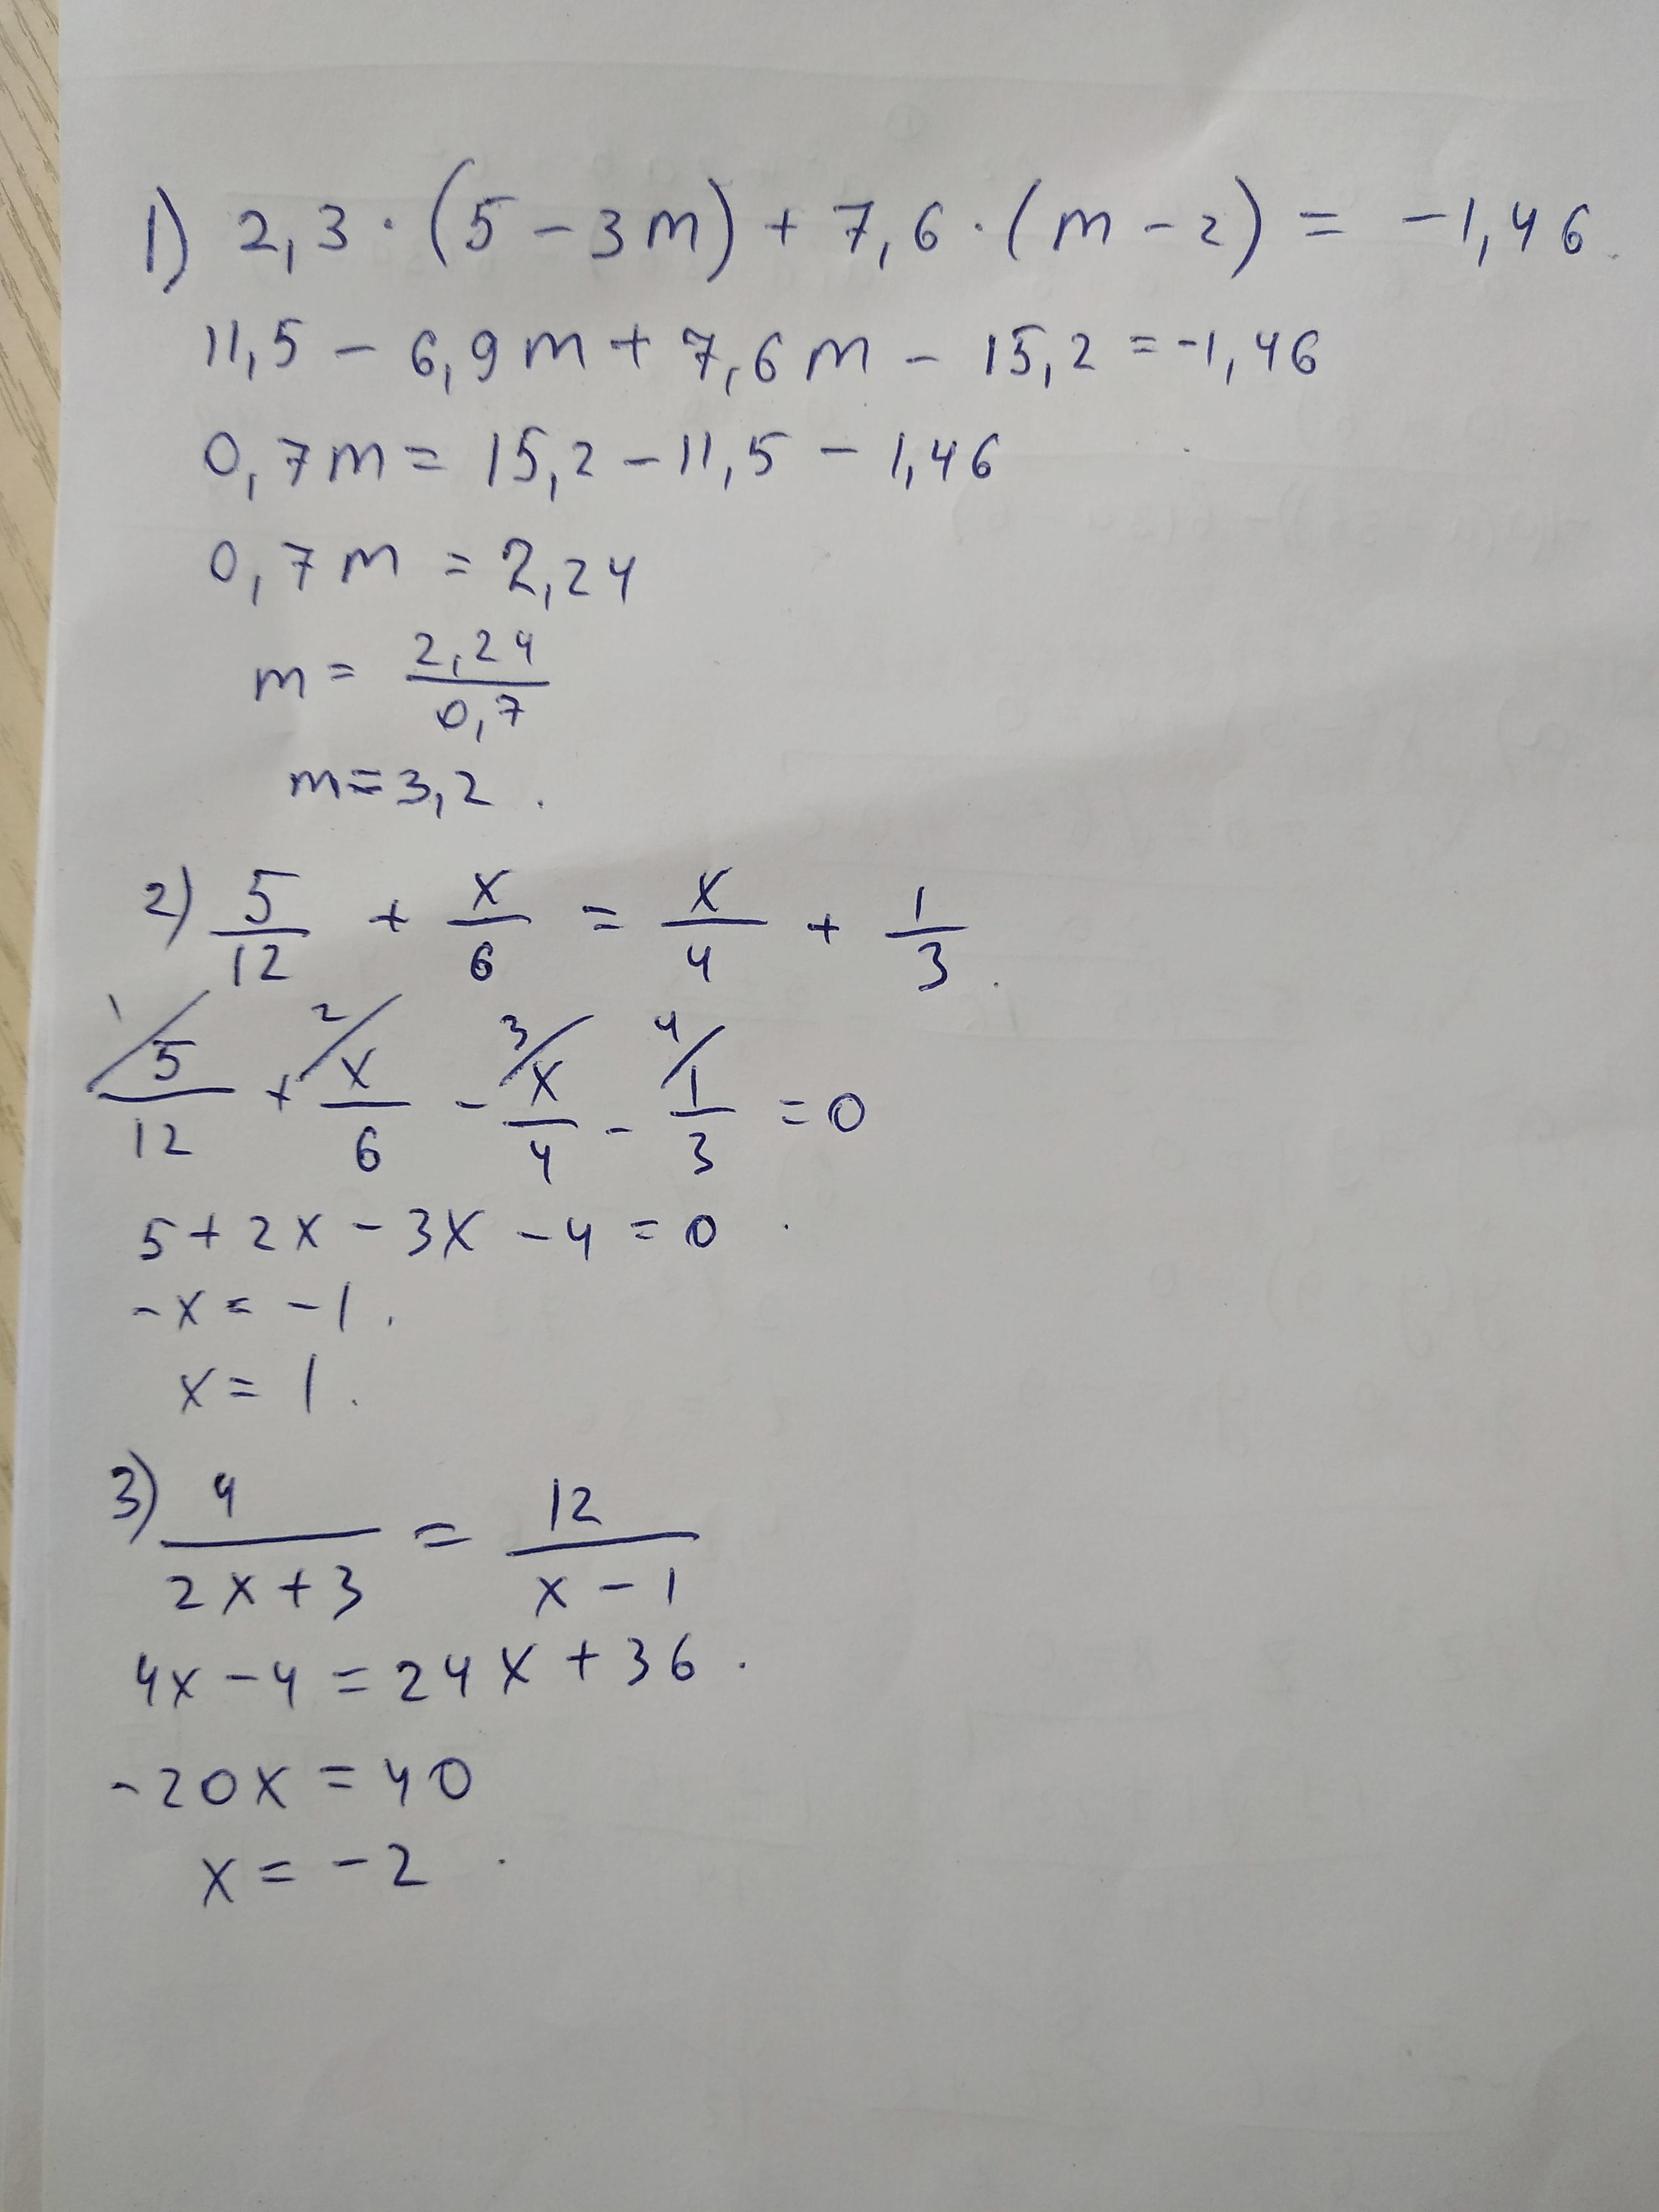 1) 2,3 · (5 - 3m) + 7,6 · (m - 2) = -1,46
11,5 - 6,9m + 7,6m - 15,2 = -1,46
0,7m = 15,2 - 11,5 - 1,46
0,7m = 2,24
m = 2,24/0,7
m = 3,2.
2) 5/12 + x/6 = x/4 + 1/3.
1/ 5/12 + 2/ x/6 - 3/ x/4 - 4/ 1/3 = 0
5 + 2x - 3x - 4 = 0.
-x = -1.
x = 1.
3) 4/(2x+3) = 12/(x-1)
4x - 4 = 24x + 36.
-20x = 40
x = -2.